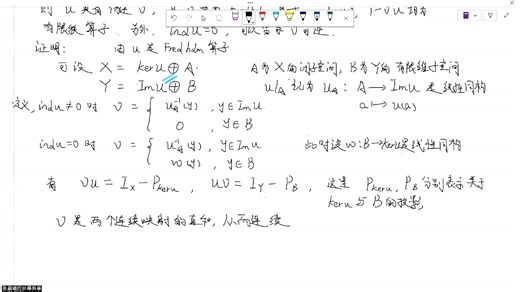 有限秩算子. 另外, indu=0时,
证明: 由 u 是 Fredholm 算子
可设 X = keru ⊕ A. A为 X 的闭子空间, B为 Y的有限维子空间
Y = Imu ⊕ B u|A 记为 uA: A → Imu 是线性同构
a ↦ u(a)
定义, indu≠0 时 v = { uA⁻¹(y), y∈Imu
0 , y∈B
indu=0 时 v = { uA⁻¹(y), y∈Imu 此时设 w: B→keru是线性同构.
w(y), y∈B
有 vu = Ix − Pkeru, uv = IY − PB, 这里 Pkeru, PB 分别表示关于
keru 与 B 的投影,
v 是两个连续映射的直和, 从而连续.